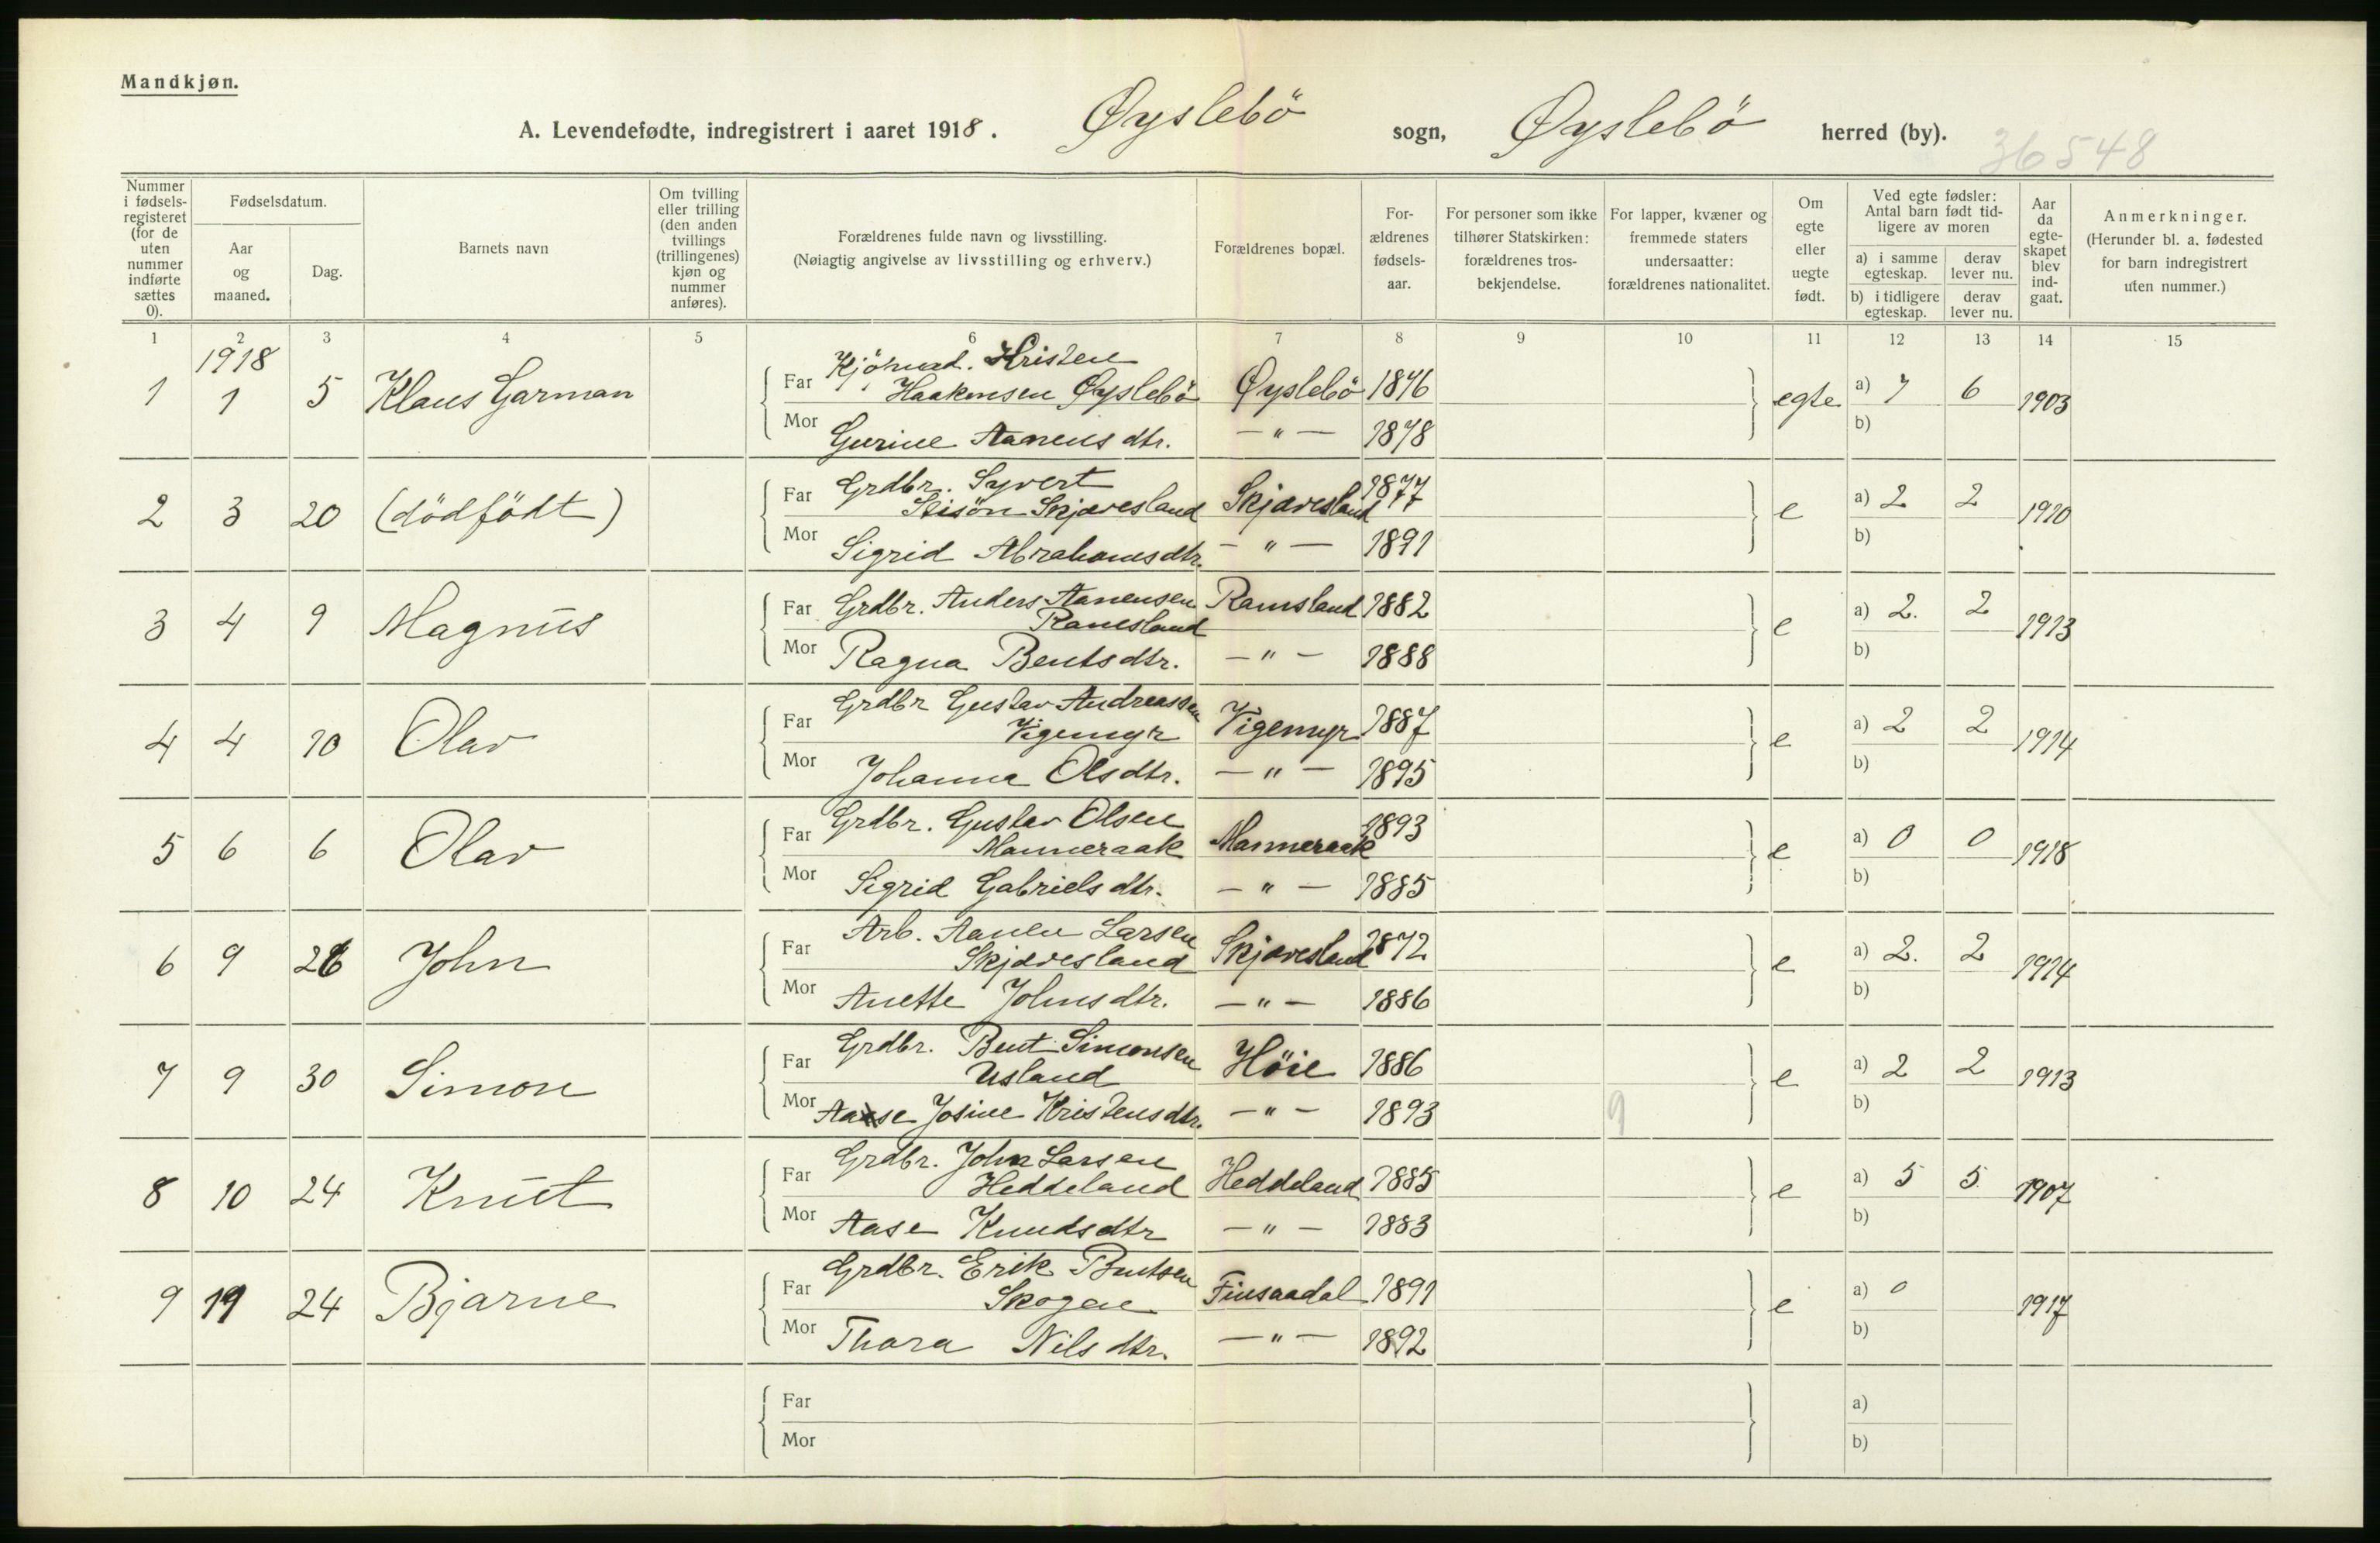 Mandkjøn.
A. Levendefødte, indregistrert i aaret 1918. Øyslebö sogn, Øyslebö herred (by).
36548
Nummer i fødsels-registeret (for de uten nummer indførte sættes 0).
Fødselsdatum.
Aar og maaned.
Dag.
Barnets navn
Om tvilling eller trilling (den anden tvillings (trillingenes) kjøn og nummer anføres).
Forældrenes fulde navn og livsstilling.
(Nøiagtig angivelse av livsstilling og erhverv.)
Forældrenes bopæl.
For-ældrenes fødsels-aar.
For personer som ikke tilhører Statskirken: forældrenes tros-bekjendelse.
For lapper, kvæner og fremmede staters undersaatter: forældrenes nationalitet.
Om egte eller uegte født.
Ved egte fødsler: Antal barn født tid-ligere av moren
a) i samme egteskap.
derav lever nu.
b) i tidligere egteskap.
derav lever nu.
Aar da egte-skapet blev ind-gaat.
Anmerkninger.
(Herunder bl. a. fødested for barn indregistrert uten nummer.)
1 2 3 4 5 6 7 8 9 10 11 12 13 14 15
1918
1 1 5 Klaus Garman Far Kjömd. Kristen
Haakonsen Øyslebö Øyslebö 1876 egte a) 7 6 1903
Mor Gurine Aanensdtr. — " — 1878 b)
2 3 20 (dödfödt) Far Grdbr. Syvert
Skjævesland Skjævesland 1877 e a) 2 2 1910
Mor Sigrid Abrahamsdtr. — " — 1891 b)
3 4 9 Magnus Far Grdbr. Anders Aanensen
Ramsland Ramsland 1882 e a) 2. 2 1913
Mor Ragna Bentsdtr. — " — 1888 b)
4 4 10 Olav Far Grdbr Gustav Andreassen
Vigemyr Vigemyr 1887 e a) 2 2 1914
Mor Johanna Olsdtr. — " — 1895 b)
5 6 6 Olav Far Grdbr. Gustav Olsen
Manneraak Manneraak 1893 e a) 0 0 1918
Mor Sigrid Gabrielsdtr. — " — 1885 b)
6 9 26 John Far Arb. Aanen Larsen
Skjævesland Skjævesland 1872 e a) 2. 2 1914
Mor Anette Johnsdtr. — " — 1886 b)
7 9 30 Simon Far Grdbr. Bent Simonsen
Usland Höie 1886 e a) 2 2 1913
Mor Aase Josine Kristensdtr. — " — 1893 9 b)
8 10 24 Knut Far Grdbr. John Larsen
Heddeland Heddeland 1885 e a) 5 5 1907
Mor Aase Knudsdtr — " — 1883 b)
9 11 24 Bjarne Far Grdbr. Erik Bentsen
Skogen Finsaadal 1891 e a) 0 1917
Mor Thora Nilsdtr. — " — 1892 b)
Far a)
Mor b)